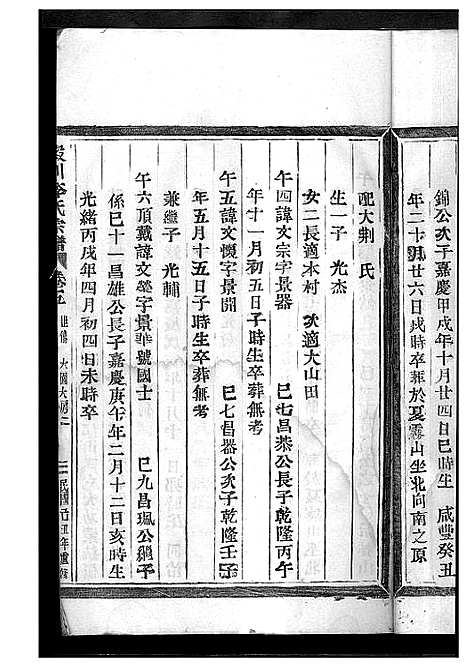 錦公次子嘉慶甲戌年十月廿四日巳時生　咸豐癸丑
年二十月廿六日戌時卒葬於夏霧山坐北向南之原
配大荆　氏
生一子　光杰
女二長適本村　次適大山田
午四諱文宗字景器　巳七昌恭公長子乾隆丙午
年十一月初五日子時生卒葬無考
午五諱文懷字景開　巳七昌器公次子乾隆壬子
年五月十五日子時生卒葬無考
兼繼子　光輔
午六頂戴諱文字景華號國士　巳九昌珮公繼子
係巳十一昌雄公長子嘉慶庚午年二月十二日亥時生
光緒丙戌年四月初四日未時卒
川李氏宗譜　卷五　世傳　大園大房二　民國乙丑年重修